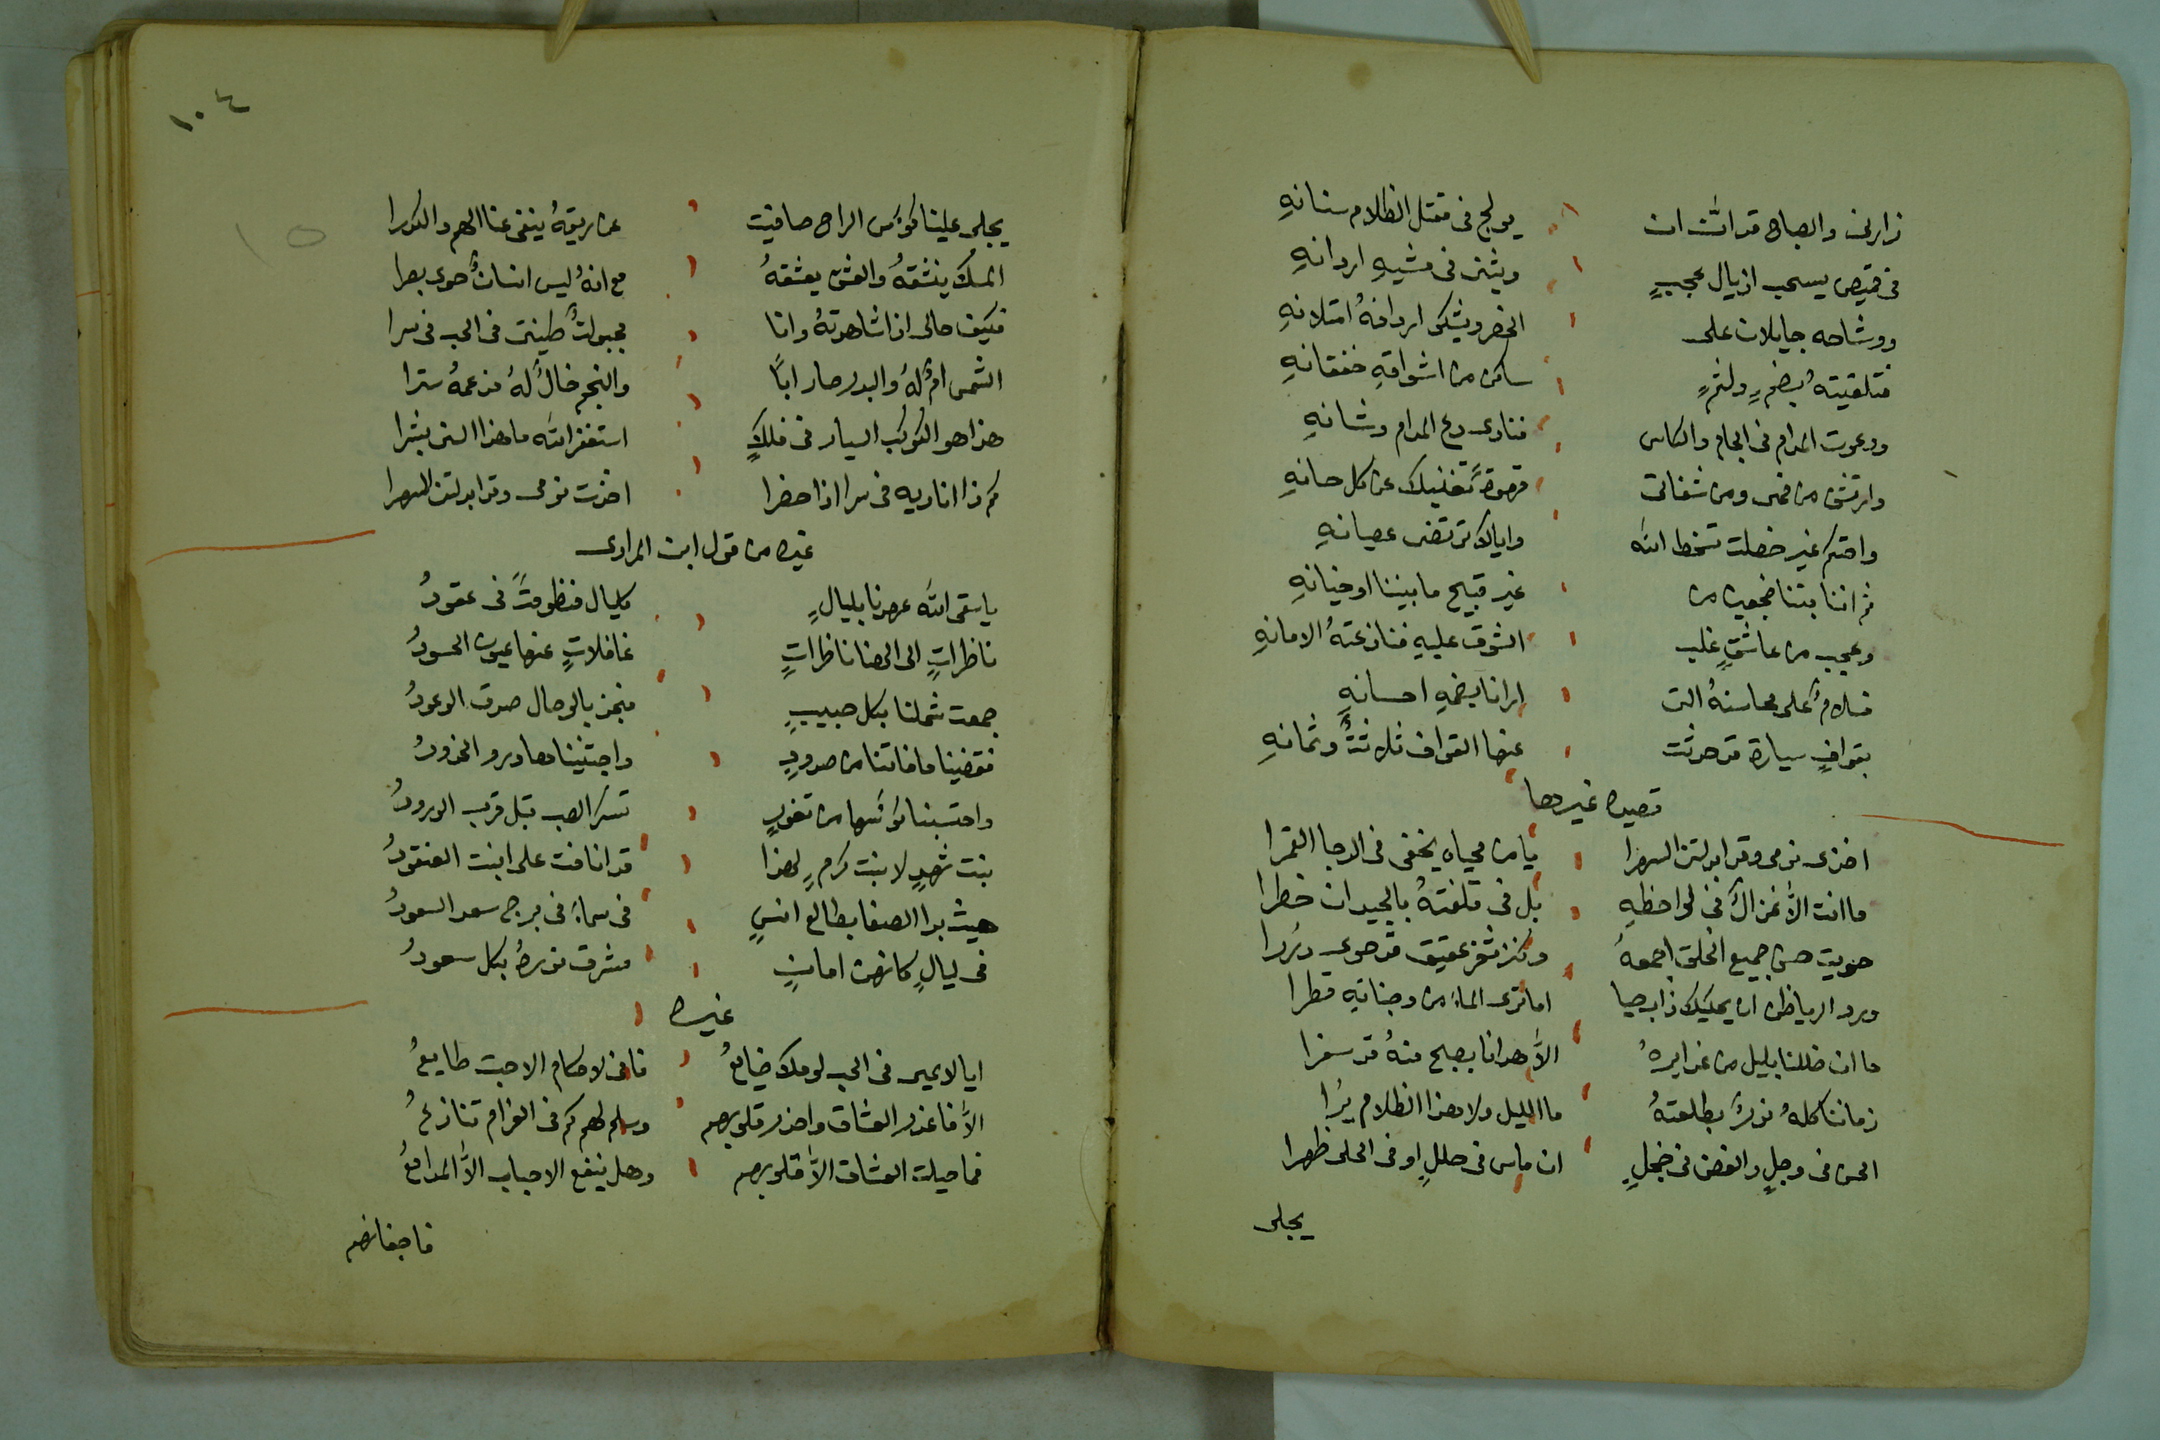 زارنى والصباح قد اتت ان يولج فى مقتل الظلام سنانهِ
فى قميصٍ يسحب ازيال عجبٍ ويثنى فى مشيهِ اردانهِ
ووشاحه جايلات على الخصر ويشكى اردافهُ امتلانهِ
فتلقيتهُ بضمٍ ولثمٍ ساكن من اشواقهِ خفقانهِ
ودعوت المدام فى الجام والكاس فنادى دع المدام وشانهِ
وارتشى من فمى ومن شفاتى قهوةً تغنيك عن كل حانهِ
واحتكم غير خصلت تسخط الله واياك ترتضى عصيانهِ
ثم اننا بتنا ضجيعين من غير قبيح ما بيننا او خيانهِ
وعجيب من عاشقٍ غلب الشوق عليهِ فنازعتهُ الامانهِ
فسلامٌ على محاسنهُ التى ارانا بضمهِ احسانهِ
بقوافٍ سيارة قد حوت عنها القواف ثلاثتٌ وثمانهِ
قصيده غيرها
اخذت نومى وقد ابدلتنى السهرا يا من محياه يخفى فى الدجا القمرا
ما انت الاَّ غزالٌ فى لواحظهِ بل فى تلفتهُ بالجيد ان خطرا
حويت حسن جميع الخلق اجمعهُ وكنز ثغز عقيق قد حوى دررا
وبرد الرياظن ان يحكيك ذاب حيا اما ترى الماءَ من وجناتهِ قطرا
ما ان ضللنا بليل من غدايرهُ الاَّ هدانا بصبح منهُ قد سفرا
زماننا كلهُ نورٌ بطلعتهُ ما الليل ولا هذا الظلام يُرا
الحسن فى وجلٍ والغصن فى خجلٍ ان ماس فى حللٍ او فى الحلى ظهرا
يجلى
١٠٤
يجلى علينا كؤس الراح صافيت من ريقهُ ينفى عنا الهم والكدرا
المسك ينشقهُ والعشق يعشقهُ مع انهُ ليس انسانٌ حوى بصرا
فكيف حالى اذا شاهدتهُ وانا مجبولتٌ طينتى فى الحب فى سرا
الشمس امٌ لهُ والبدر صار اباً والنجم خالٌ لهُ من عمهُ سترا
هذا هو الكوكب السيار فى فلكٍ استغفر الله ما هذا السنى بشرا
كم ذا اناديه فى سرا اذا حضرا اخذت نومى وقد ابدلتنى السهرا
غيره من قول ابن المرادى
يا سقى الله عهدنا بليالٍ كليال منظومتً فى عقودُ
ناظراتٍ الى الهنا ناظراتٍ غافلاتٍ عنها عيون الحسودُ
جمعت شملنا بكل حبيبٍ منجز بالوصال صدق الوعودُ
فقضينا ما فاتنا من صدودٍ واجتنينا مصادر والخدودُ
واحتسينا كؤسها من ثغورٍ تسكر الصب قبل قرب الورودُ
بنت شهدٍ لا بنت كرمٍ لهذا قد انافت على ابنت العنقودُ
حيث بدا الصفا بطالع انسٍ فى سماءَ فى برج سعد السعودُ
فى ليالٍ كانهن امانٍ مشرق نورهُ بكل سعودُ
غيره
ايا لايمى فى الحب لومك ضايعُ فانى لاحكام الاحبت طايعُ
الاَّ فاعذر العشاق واحذر قلوبهم وسلم لهم كم فى الغرام تنازعُ
فما حيلت العشاق الاَّ قلوبهم وهل ينفع الاحباب الاَّ المدامعُ
فاجفانهم